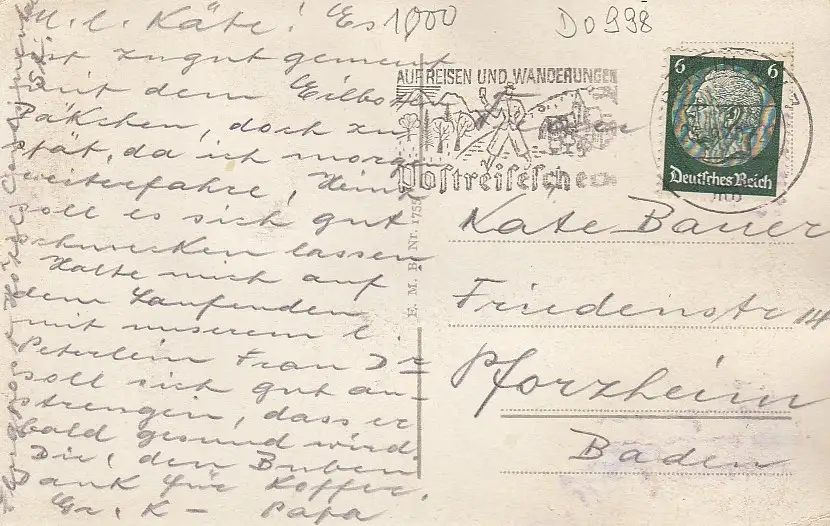 M. l. Käte! Es
ist zu gut gement
mit dem Eilboten
Päkchen, doch zu
spät, da ich morgen
weiterfahre, Heinz
soll es sich gut
schmecken lassen
Halte mich auf
dem Laufenden
mit unserem l.
Peterlein Frau Dr
soll sich gut an-
strengen, dass er
bald gesund wird.
Die, den Buben
ank für Koffer.
Gr. K - Papa
1000
Do 998
AUF REISEN UND WANDERUNGEN
Postreisesche
6 6
Deutsches Reich
E. M. B. Nr. 1755
Käte Bauer
Friedenstr 114
Pforzheim
Baden